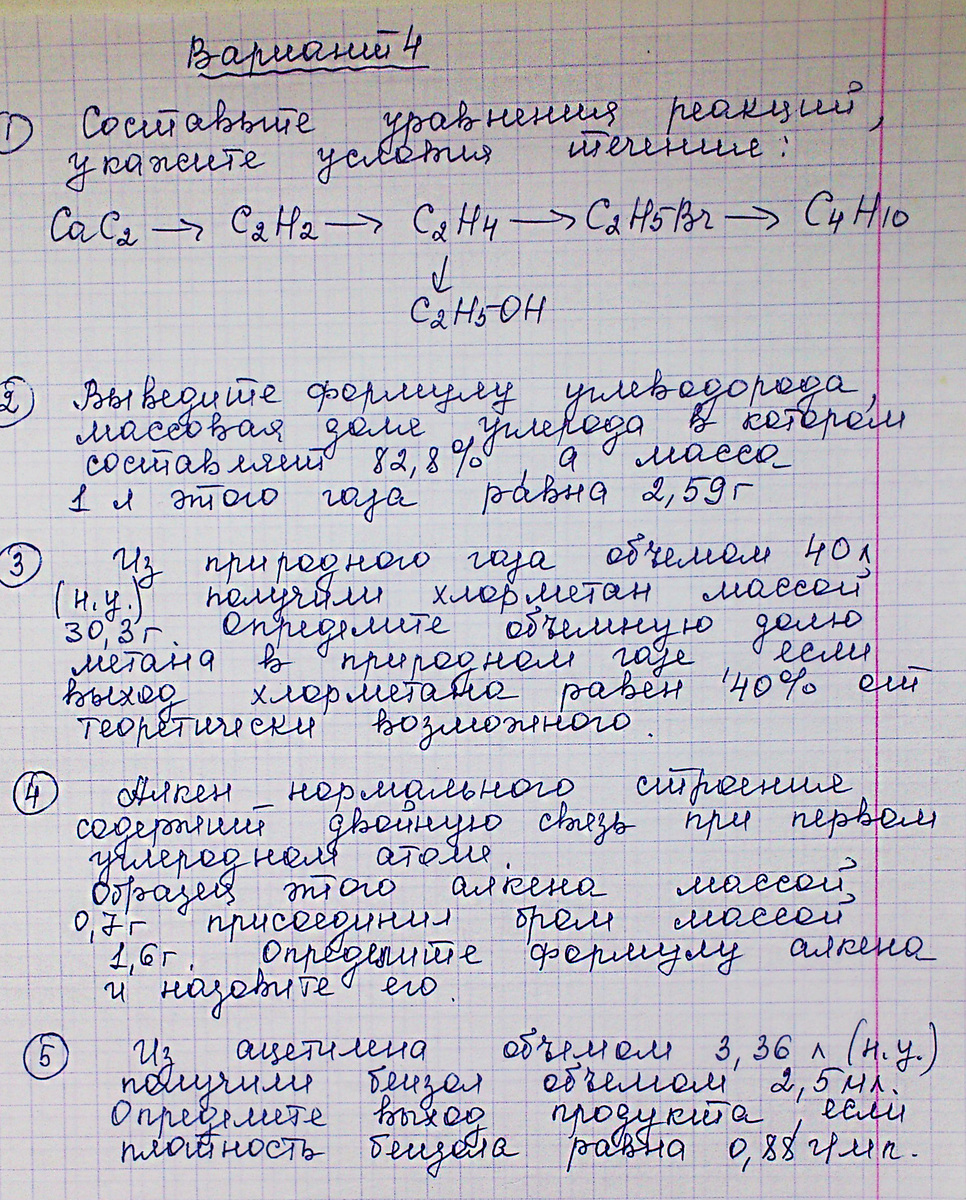 Вариант 4
① Составьте уравнения реакций,
укажите условия течения:
CaC2 → C2H2 → C2H4 → C2H5Br → C4H10
↓
C2H5OH
② Выведите формулу углеводорода,
массовая доля углерода в котором
составляет 82,8%, а масса
1 л этого газа равна 2,59 г
③ Из природного газа объемом 40 л
(н.у.) получили хлорметан массой
30,3 г. Определите объемную долю
метана в природном газе если
выход хлорметана равен 40% от
теоретически возможного.
④ Алкен нормального строения
содержит двойную связь при первом
углеродном атоме.
Образец этого алкена массой
0,7 г присоединил бром массой
1,6 г. Определите формулу алкена
и назовите его.
⑤ Из ацетилена объемом 3,36 л (н.у.)
получили бензол объемом 2,5 мл.
Определите выход продукта, если
плотность бензола равна 0,88 г/мл.